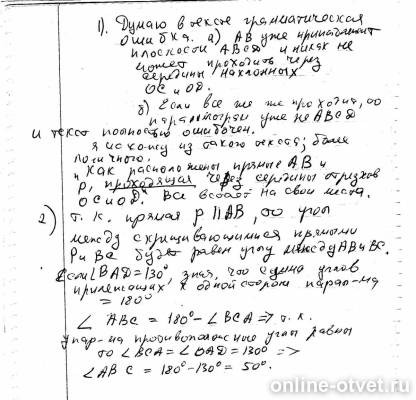 1). Думаю в тексте грамматическая
ошибка. а) AB уже принадлежит
плоскости ABCD и никак не
может проходить через
середины наклонных
OC и OD.
б) Если все же же проходит, то
параллограм уже не ABCD
и текст полностью ошибочен.
я исхожу из такого текста; более
логичного.
"Как расположены прямые AB и
p, проходящая через середины отрезков
OC и OD." Все встает на свои места.
2) т. к. прямая p || AB, то углы
между скрищивающимися прямыми
P и BC будет равен углу между AB и BC.
Если ∠BAD = 130°, зная, что сумма углов
прилежащих к одной стороне парал-ма
= 180°
∠ ABC = 180° - ∠BCA => т. к.
у пар-ма противоположные углы равны
то ∠BCA = ∠BAD = 130° =>
∠ABC = 180° - 130° = 50°.
online-otvet.ru